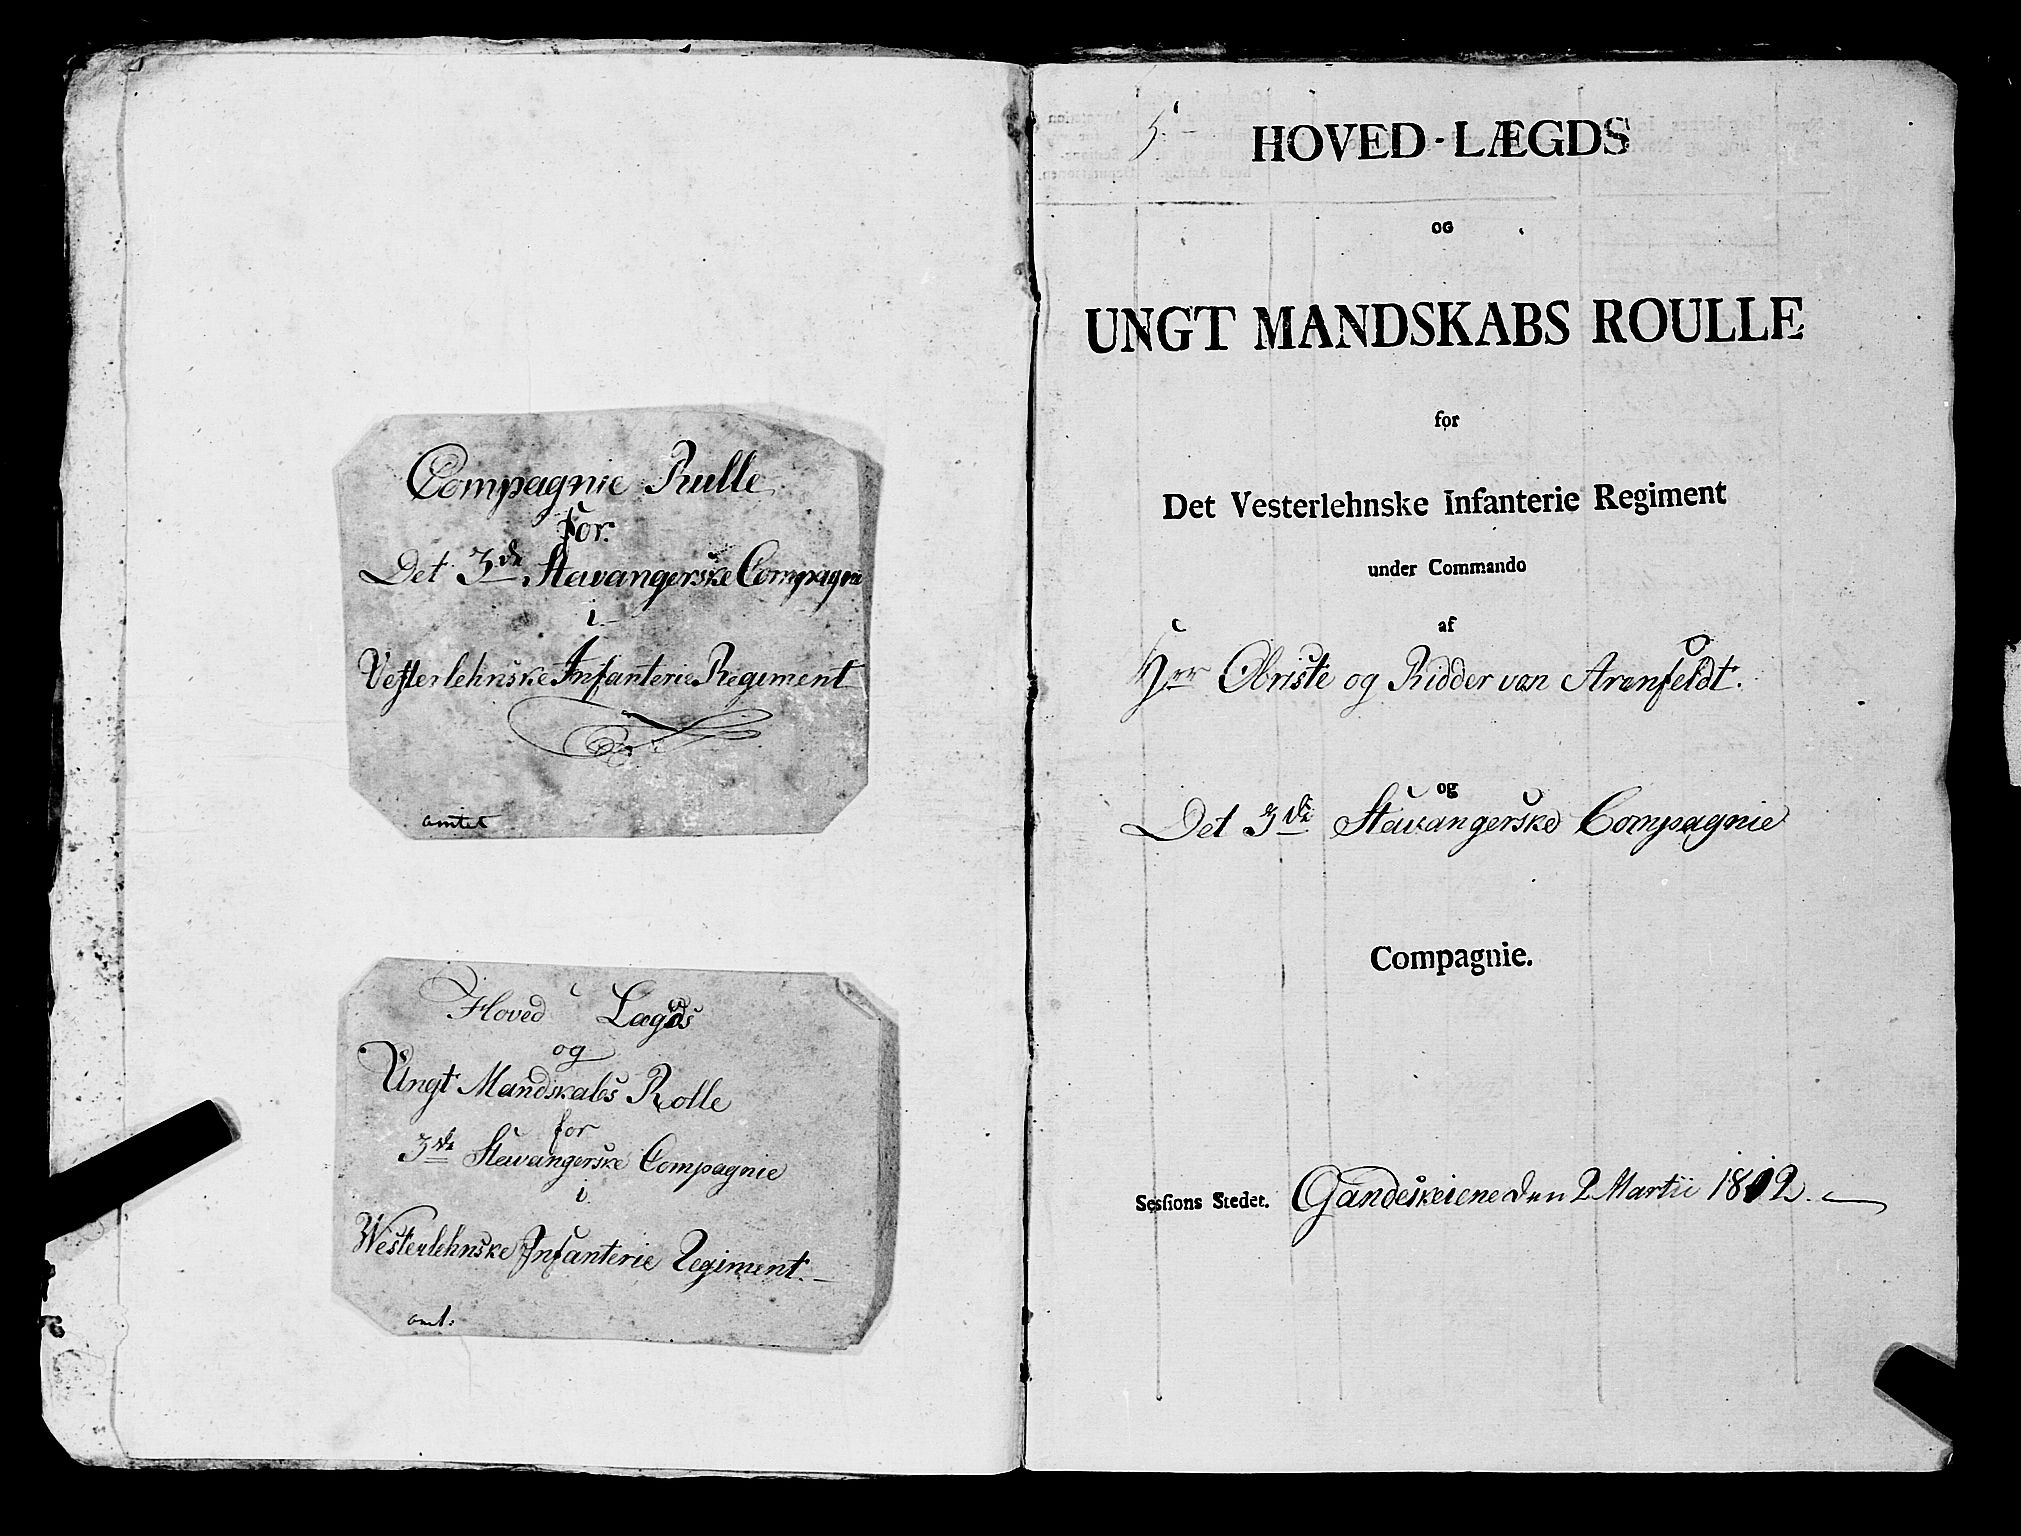 Compagnie Rulle
for.
Det 3de Stavangerske Compagnie
i
Vesterlehnske Infanterie Regiment
amtet
Hoved Lægds
og
Ungt Mandskabs Rolle
for
3de Stavangerske Compagnie
i
Westerlehnske Infanterie Regiment.
amt:
5
HOVED-LÆGDS
OG
UNGT MANDSKABS ROULLE
for
Det Vesterlehnske Infanterie Regiment
under Commando
af
Hrr Obriste og Ridder van Arenfeldt.
og
Det 3de Stavangerske Compagnie
Compagnie.
Sessions Stedet. Gandeskeiene den 2 Martii 1812.